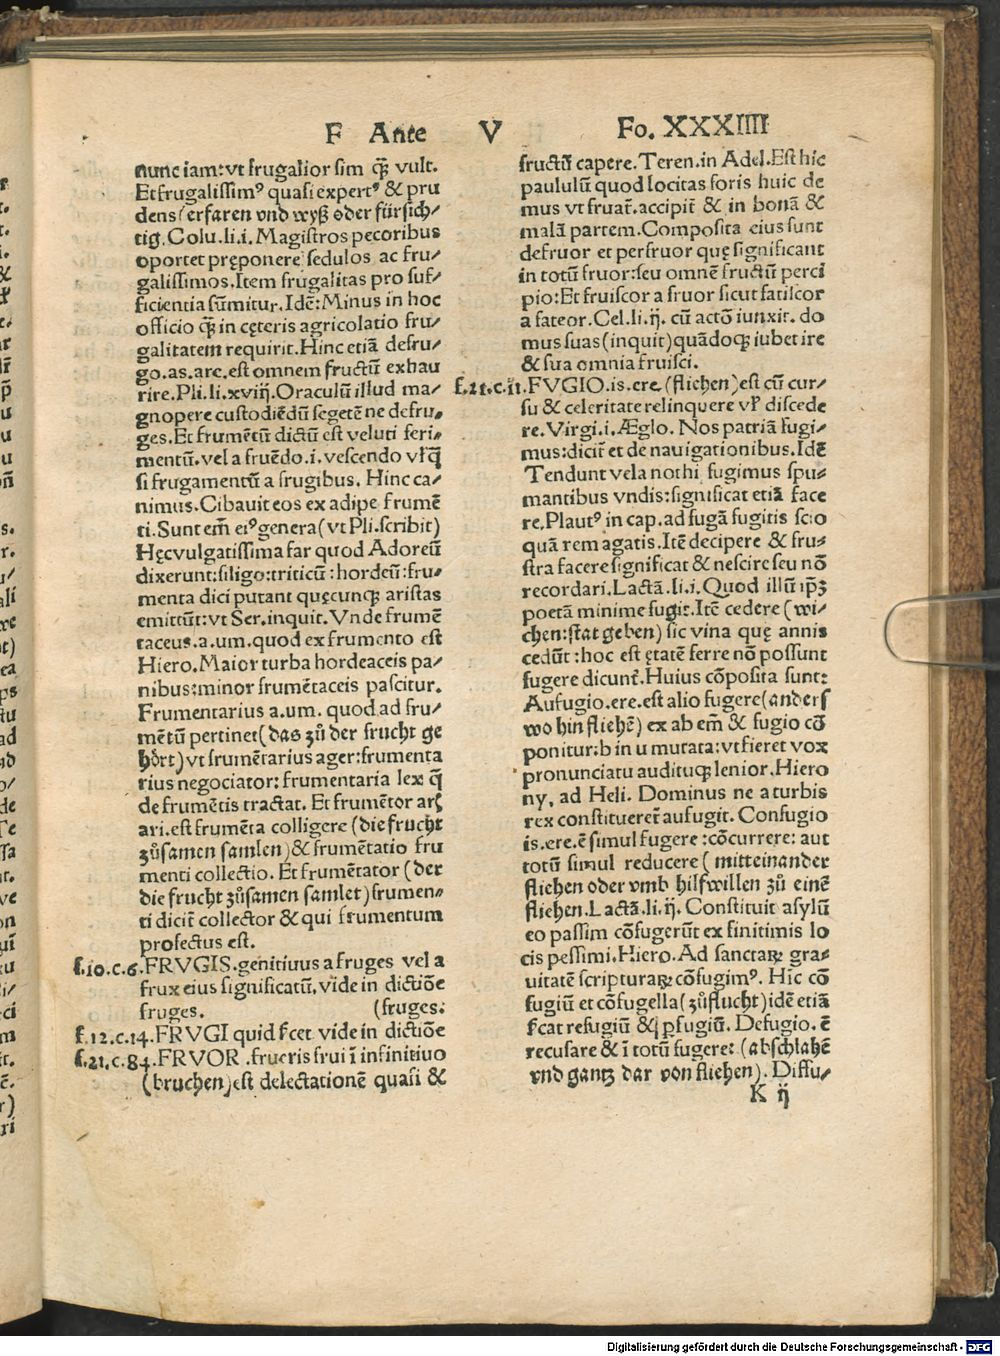 F Ante V Fo. XXXIIII
nunc iam: vt frugalior sim q̃ vult.
Et frugalissimꝰ quasi expertꝰ & pru
dens (erfaren vnd wyß oder fürsich/
tig. Colu.li.i. Magistros pecoribus
oportet pręponere sedulos ac fru/
galissimos. Item frugalitas pro suf/
ficientia sūmitur. Idē: Minus in hoc
officio q̃ in cęteris agricolatio fru/
galitatem requirit. Hinc etiā defru/
go.as.are.est omnem fructū exhau
rire. Pli.li.xviij. Oraculū illud ma/
gnopere custodiēdū segetē ne defru/
ges. Et frumētū dictū est veluti feri/
mentū. vel a fruēdo.i. vescendo vl̓ q̄
si frugamentū a frugibus. Hinc ca/
nimus. Cibauit eos ex adipe frumē
ti. Sunt em̄ eiꝰ genera (vt Pli. scribit)
Hęc vulgatissima far quod Adoreū
dixerunt: siligo: triticū: hordeū: fru/
menta dici putant quęcunq̢ aristas
emittūt: vt Ser. inquit. Vnde frumē
taceus.a.um. quod ex frumento est
Hiero. Maior turba hordeaceis pa/
nibus: minor frumētaceis pascitur.
Frumentarius a.um. quod ad fru/
mētū pertinet (das zů der frucht ge
hört) vt frumētarius ager: frumenta
rius negociator: frumentaria lex q̄
de frumētis tractat. Et frumētor arς
ari. est frumēta colligere (die frucht
zůsamen samlen) & frumētatio fru
menti collectio. Et frumētator (der
die frucht zůsamen samlet) frumen/
ti dicit̄ collector & qui frumentum
profectus est.
f.10.c.6. FRVGIS. genitiuus a fruges vel a
frux eius significatū. vide in dictiōe
fruges. (fruges:
f.12.c.14. FRVGI quid s̓cet vide in dictiōe
f.21.c.84. FRVOR .frueris frui ī infinitiuo
(bruchen) est delectationē quasi &
fructū capere. Teren. in Adel. Est hic
paululū quod locitas foris huic de
mus vt fruat̄. accipit̄ & in bonā &
malā partem. Composita eius sunt
defruor et perfruor quę significant
in totū fruor: seu omnē fructū perci
pio: Et fruiscor a fruor sicut fatiscor
a fateor. Cel.li.ij. cū actō iunxit. do
mus suas (inquit) quādoq̢ iubet ire
& sua omnia fruisci.
f.21.c.11. FVGIO.is.ere. (fliehen) est cū cur/
su & celeritate relinquere vl̓ discede
re. Virgi.i. Æglo. Nos patriā fugi/
mus: dicit̄ et de nauigationibus. Idē
Tendunt vela nothi fugimus spu/
mantibus vndis: significat etiā face
re. Plautꝰ in cap. ad fugā fugitis scio
quā rem agatis. Itē decipere & fru/
stra facere significat & nescire seu nō
recordari. Lactā.li.i. Quod illū ip̄ꝫ
poetā minime fugit. Itē cedere (wi/
chen: stat geben) sic vina quę annis
cedūt: hoc est ętatē ferre nō possunt
fugere dicunt̄. Huius cōposita sunt:
Aufugio.ere. est alio fugere (anders
wo hin fliehē) ex ab em̄ & fugio cō
ponitur: b in u mutata: vt fieret vox
pronunciatu audituq̢ lenior. Hiero
ny. ad Heli. Dominus ne a turbis
rex constitueret̄ aufugit. Confugio
is.ere. ē simul fugere: cōcurrere: aut
totū simul reducere (mitteinander
fliehen oder vmb hilf willen zů einē
fliehen. Lactā.li.ij. Constituit asylū
eo passim cōfugerūt ex finitimis lo
cis pessimi. Hiero. Ad sanctaꝝ gra/
uitatē scripturaꝝ cōfugimꝰ. Hic cō
fugiū et cōfugella (zůflucht) idē etiā
s̓cat refugiū & p̱fugiū. Defugio. ē
recusare & ī totū fugere: (abschlahē
vnd gantz dar von fliehen). Diffu/
K ij
Digitalisierung gefördert durch die Deutsche Forschungsgemeinschaft - DFG